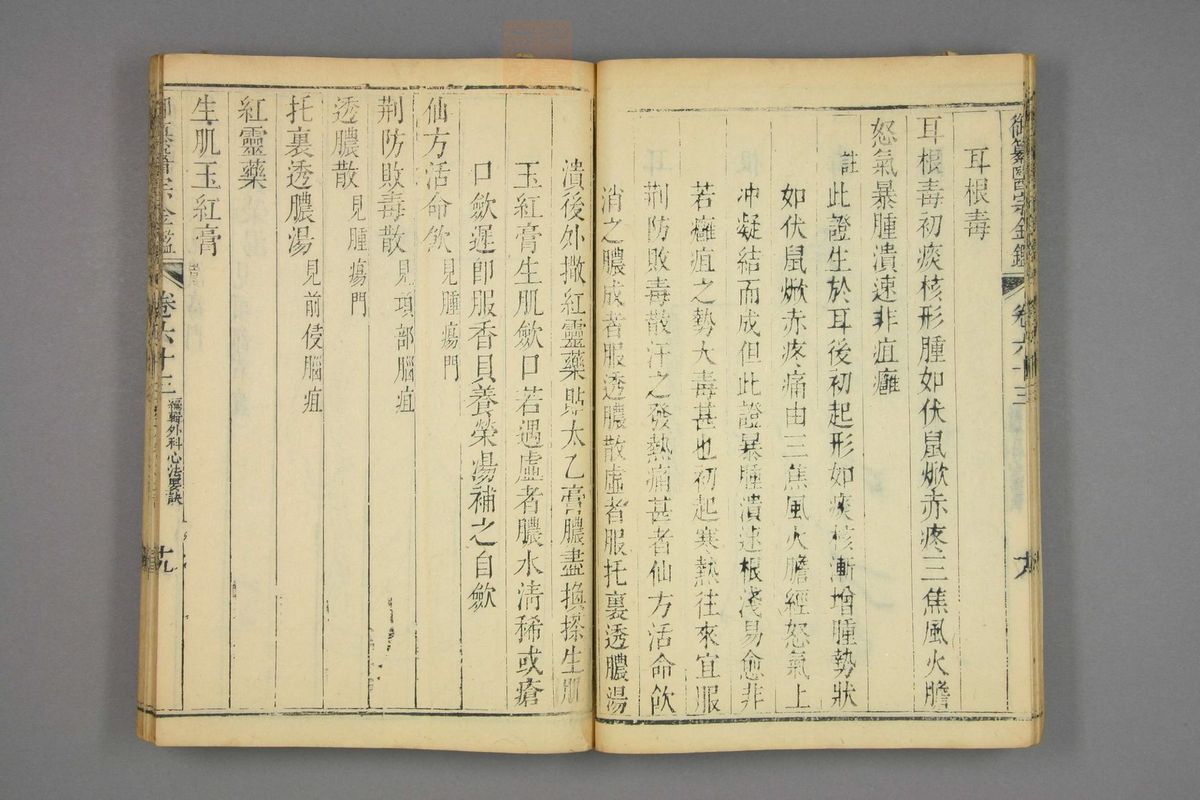 御纂醫宗金鑑 卷六十三
耳根毒
耳根毒初痰核形腫如伏鼠焮赤疼三焦風火膽
怒氣暴腫潰速非疽癰
註此證生於耳後初起形如痰核漸增腫勢狀
如伏鼠焮赤疼痛由三焦風火膽經怒氣上
冲凝結而成但此證暴腫潰速根淺易愈非
若癰疽之勢大毒甚也初起寒熱往來宜服
荆防敗毒散汗之發熱痛甚者仙方活命飲
消之膿成者服透膿散虛者服托裏透膿湯
潰後外撒紅靈藥貼太乙膏膿盡換搽生肌
玉紅膏生肌歛口若遇虛者膿水清稀或瘡
口歛遲卽服香貝養榮湯補之自歛
仙方活命飲見腫瘍門
荆防敗毒散見項部腦疽
透膿散見腫瘍門
托裏透膿湯見前侵腦疽
紅靈藥
生肌玉紅膏
卷六十三 編輯外科心法要訣 十九